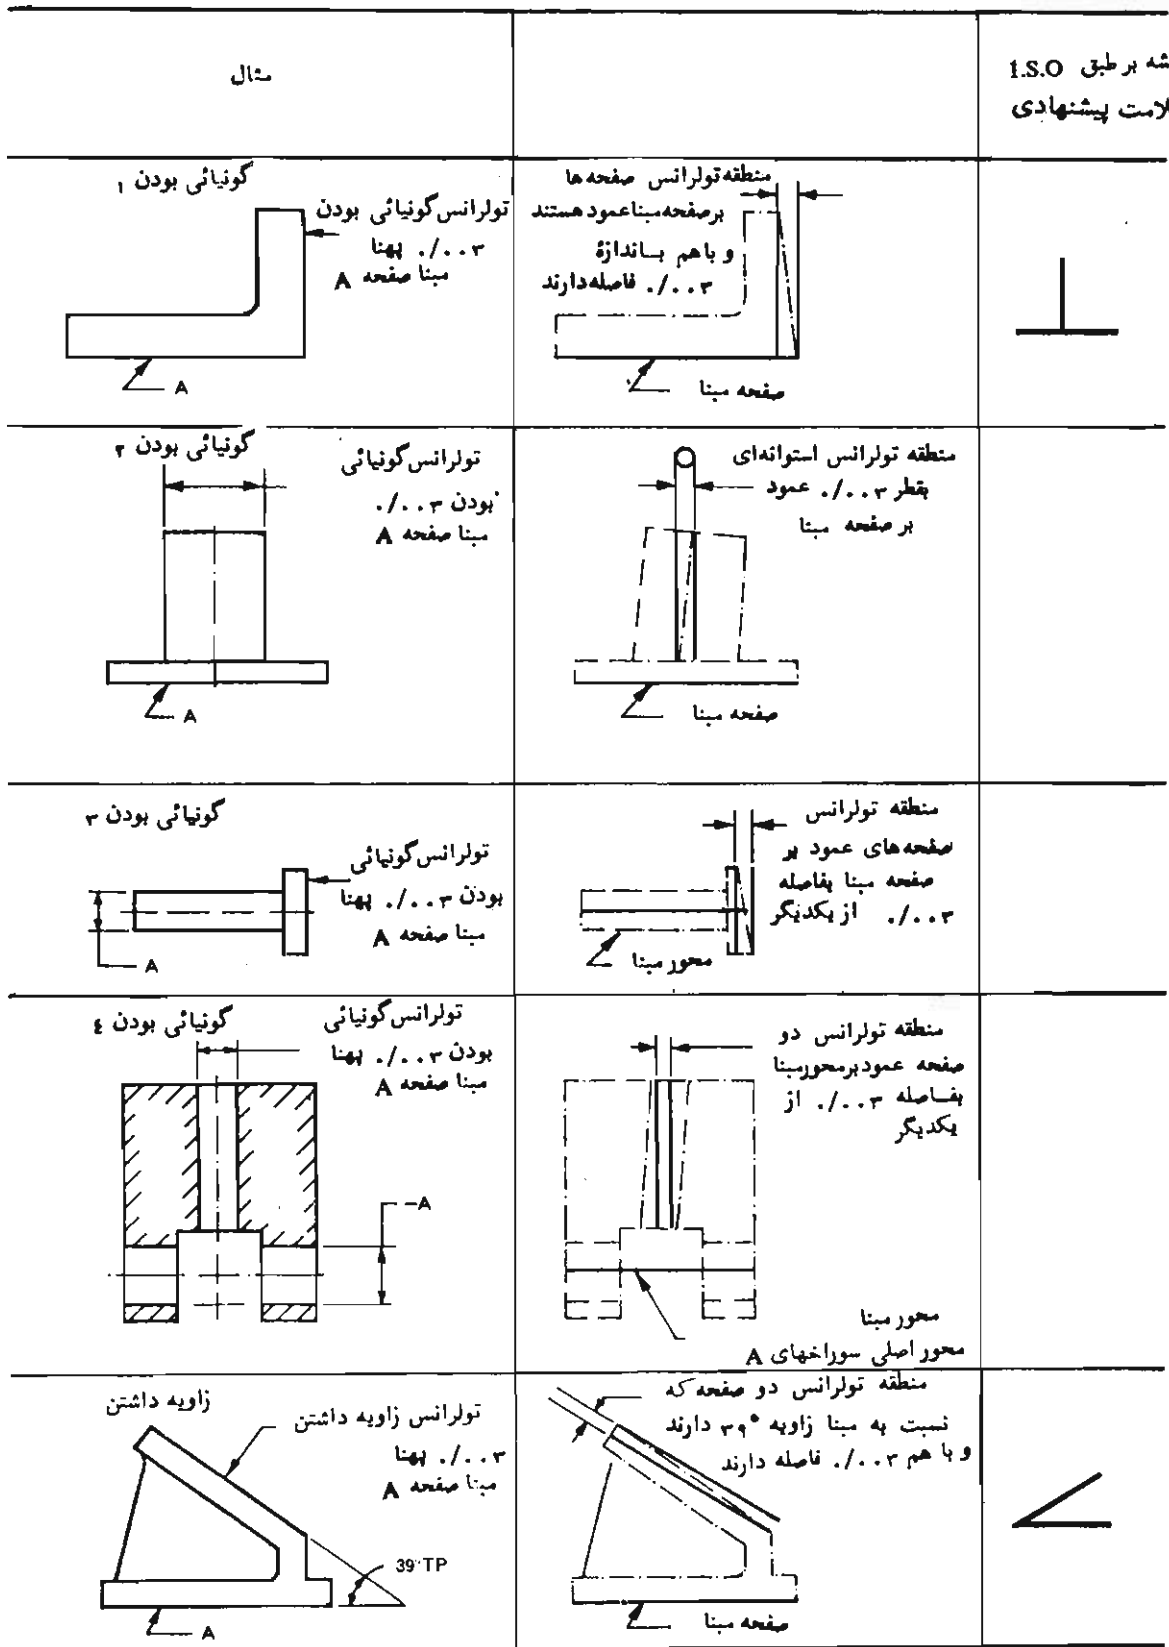 شه بر طبق I.S.O
لامت پیشنهادی
مثال
منطقه تولرانس صفحه ها
بر صفحه مبنا عمود هستند
و با هم باندازهٔ
۰/۰۰۳ فاصله دارند
صفحه مبنا
گونیائی بودن ۱
تولرانس گونیائی بودن
۰/۰۰۳ پهنا
مبنا صفحه A
A
منطقه تولرانس استوانه‌ای
بقطر ۰/۰۰۳ عمود
بر صفحه مبنا
صفحه مبنا
گونیائی بودن ۲
تولرانس گونیائی
بودن ۰/۰۰۳
مبنا صفحه A
A
منطقه تولرانس
صفحه های عمود بر
صفحه مبنا بفاصله
۰/۰۰۳ از یکدیگر
محور مبنا
گونیائی بودن ۳
تولرانس گونیائی
بودن ۰/۰۰۳ پهنا
مبنا صفحه A
A
منطقه تولرانس دو
صفحه عمود بر محور مبنا
بفاصله ۰/۰۰۳ از
یکدیگر
محور مبنا
محور اصلی سوراخهای A
گونیائی بودن ٤
تولرانس گونیائی
بودن ۰/۰۰۳ پهنا
مبنا صفحه A
A
منطقه تولرانس دو صفحه که
نسبت به مبنا زاویه ۳۹° دارند
و با هم ۰/۰۰۳ فاصله دارند
صفحه مبنا
زاویه داشتن
تولرانس زاویه داشتن
۰/۰۰۳ پهنا
مبنا صفحه A
39° TP
A